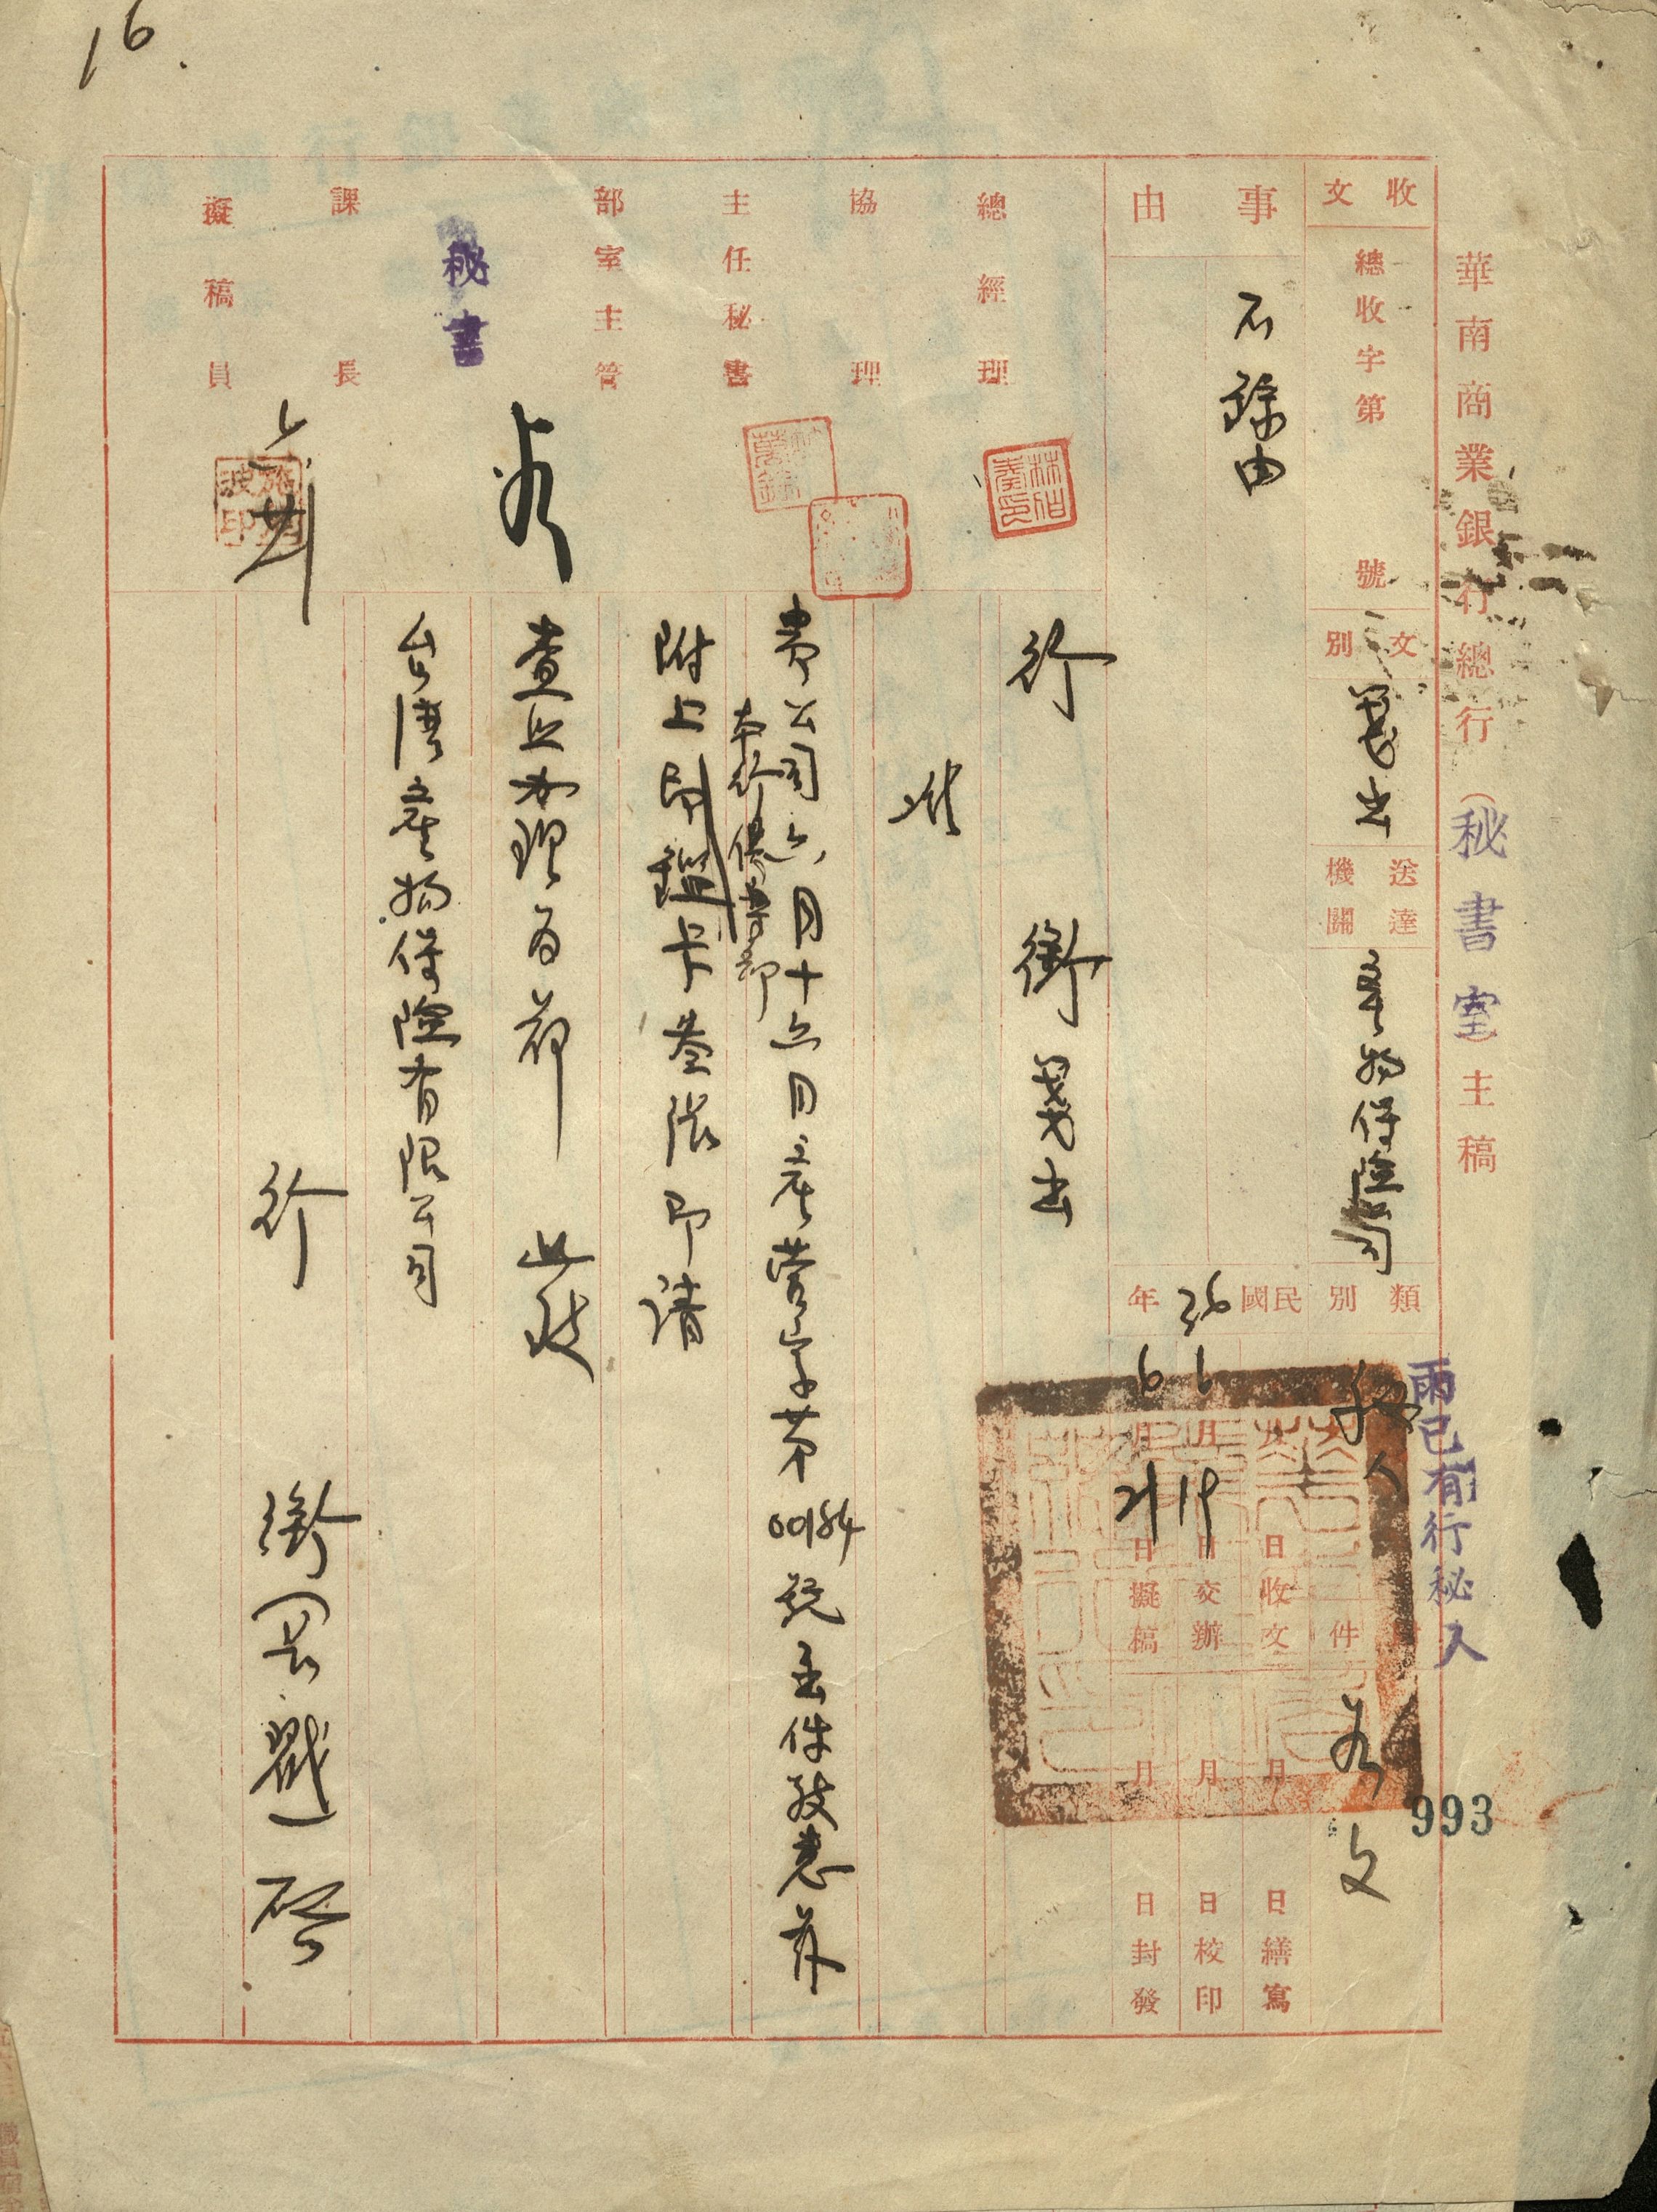 16.
華南商業銀行總行（秘書室）主稿
雨巳有行秘人
993
收文
總收字第 號
文別
箋函
送達機關
產物保險公司
類別
附件
文
事由
不錄由
民國36年
月 日收文
6月19日交辦
6月21日擬稿
月 日繕寫
月 日校印
月 日封發
總經理
協理
主任秘書
部室主管
秘書
課長
擬稿員
行 銜 箋函
准
貴公司六月十六日產營字第00184號函件敬悉茲
本行信託部
附上印鑑卡叁張即請
查照辦理為荷 此致
台灣產物保險有限公司
行 銜 戳 啓